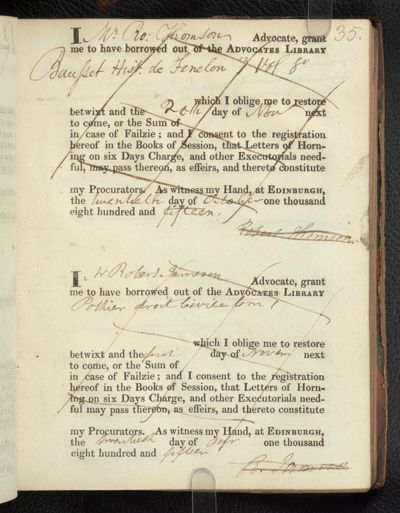 35.
I Mr Ro: Thomson Advocate, grant
me to have borrowed out of the ADVOCATES LIBRARY
Bausset Hist. de Fenelon 8o
which I oblige me to restore
betwixt and the 20th day of Nov next
to come, or the Sum of
in case of Failzie; and I consent to the registration
hereof in the Books of Session, that Letters of Horn-
ing on six Days Charge, and other Executorials need-
ful, may pass thereon, as effeirs, and thereto constitute
my Procurators. As witness my Hand, at EDINBURGH,
the twentieth day of October one thousand
eight hundred and fifteen.
Robert Thomson
I Mr Robert Advocate, grant
me to have borrowed out of the ADVOCATES LIBRARY
Pothier droit Civile tom
which I oblige me to restore
betwixt and the first day of Novem next
to come, or the Sum of
in case of Failzie; and I consent to the registration
hereof in the Books of Session, that Letters of Horn-
ing on six Days Charge, and other Executorials need-
ful may pass thereon, as effeirs, and thereto constitute
my Procurators. As witness my Hand, at EDINBURGH,
the twentieth day of one thousand
eight hundred and fifteen
R.